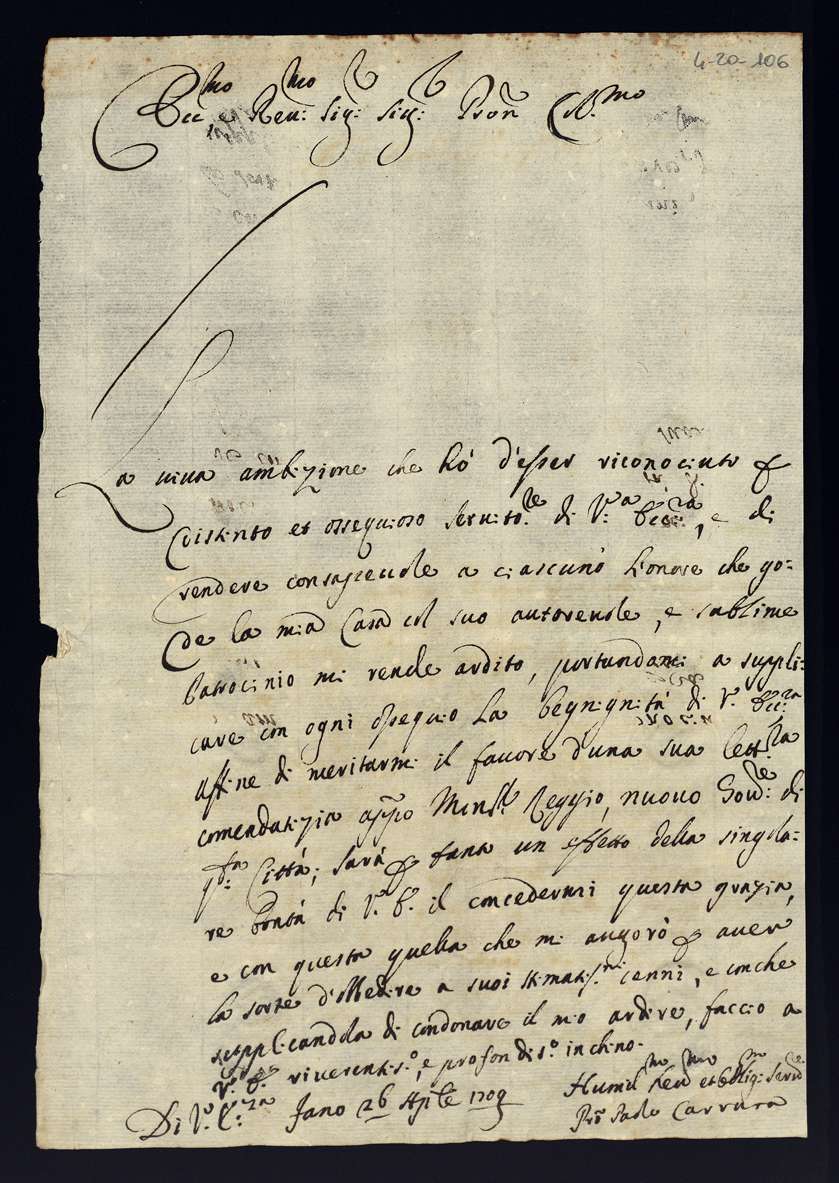 4-20-106
Ecc.mo e Reu.mo Sig.r Sig.r Pron Col.mo
La uiua ambizione che hò d'esser riconociuto p
distinto et ossequioso seruito.re di V.a Ecc.za, e di
rendere consapeuole a ciascuno l'onore che go=
de la mia Casa col suo autoreuole, e sublime
Patrocinio mi rende ardito, portandomi a suppli=
care con ogni ossequio la begnignità di V. Ecc.za
affine di meritarmi il fauore d'una sua lett.ra
comendatizia app.o Mons.r Reggio, nuouo Gou.re di
q.sta Città; sarà p tanto un effetto della singola=
re bontà di V. E. il concedermi questa grazia,
e con questa quella che mi auguro p auer
la sorte d'obbedire a suoi stimatis.mi cenni, e
supplicandola di condonare il mio ardire, faccio a
V. E. riuerentis.o, e profondis.o inchino.
Di V. E.za Fano 26 Aple 1709
Humil.mo Reu.mo et Obblig.mo Seru.re
Paolo Carrara